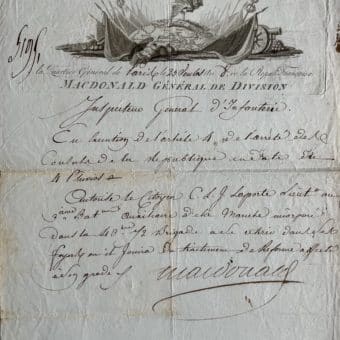 au Quartier Général de Paris le 28 Ventôse an 8 de la Répub. Française
MACDONALD GÉNÉRAL DE DIVISION
Inspecteur Général d'Infanterie.
En Execution de l'article 4 de l'arreté des
Consuls de la République en date du
4 Pluviose
Autorise le Citoyen C. d. J. Laporte Lieut. au
Bat. Auxiliaire de la Manche incorporé
dans la 40me 1/2 Brigade a se retirer dans ses
foyers ou il Jouira du traitement de Reforme affecté
à son grade
Macdonald